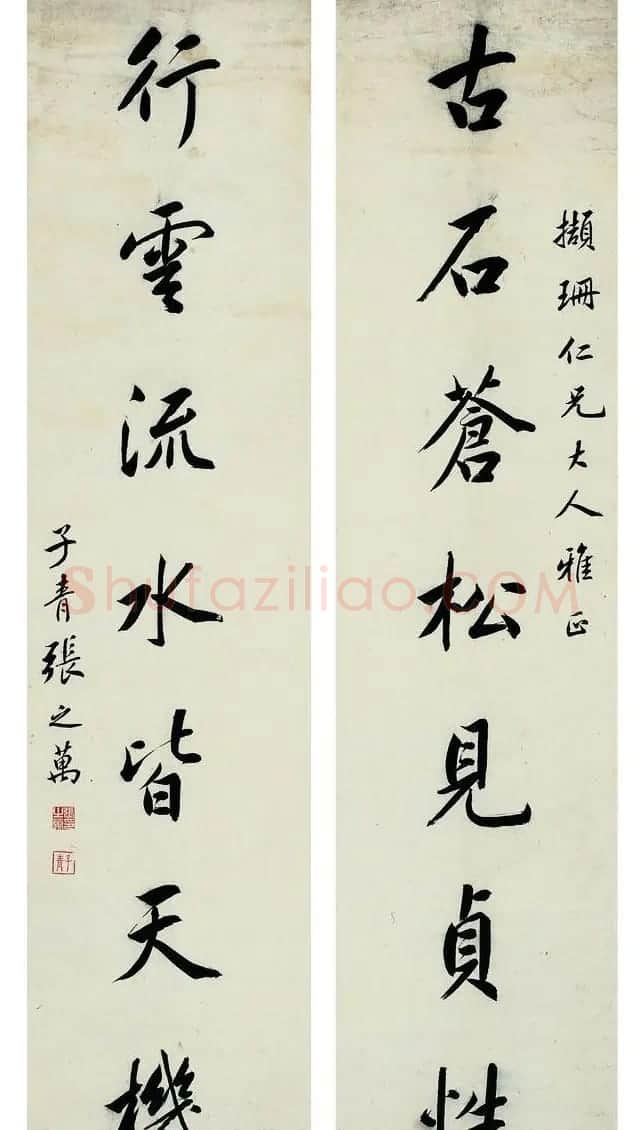 擷珊仁兄大人雅正
古石蒼松見貞性
行雲流水皆天機
子青張之萬
shufaziliao.COM